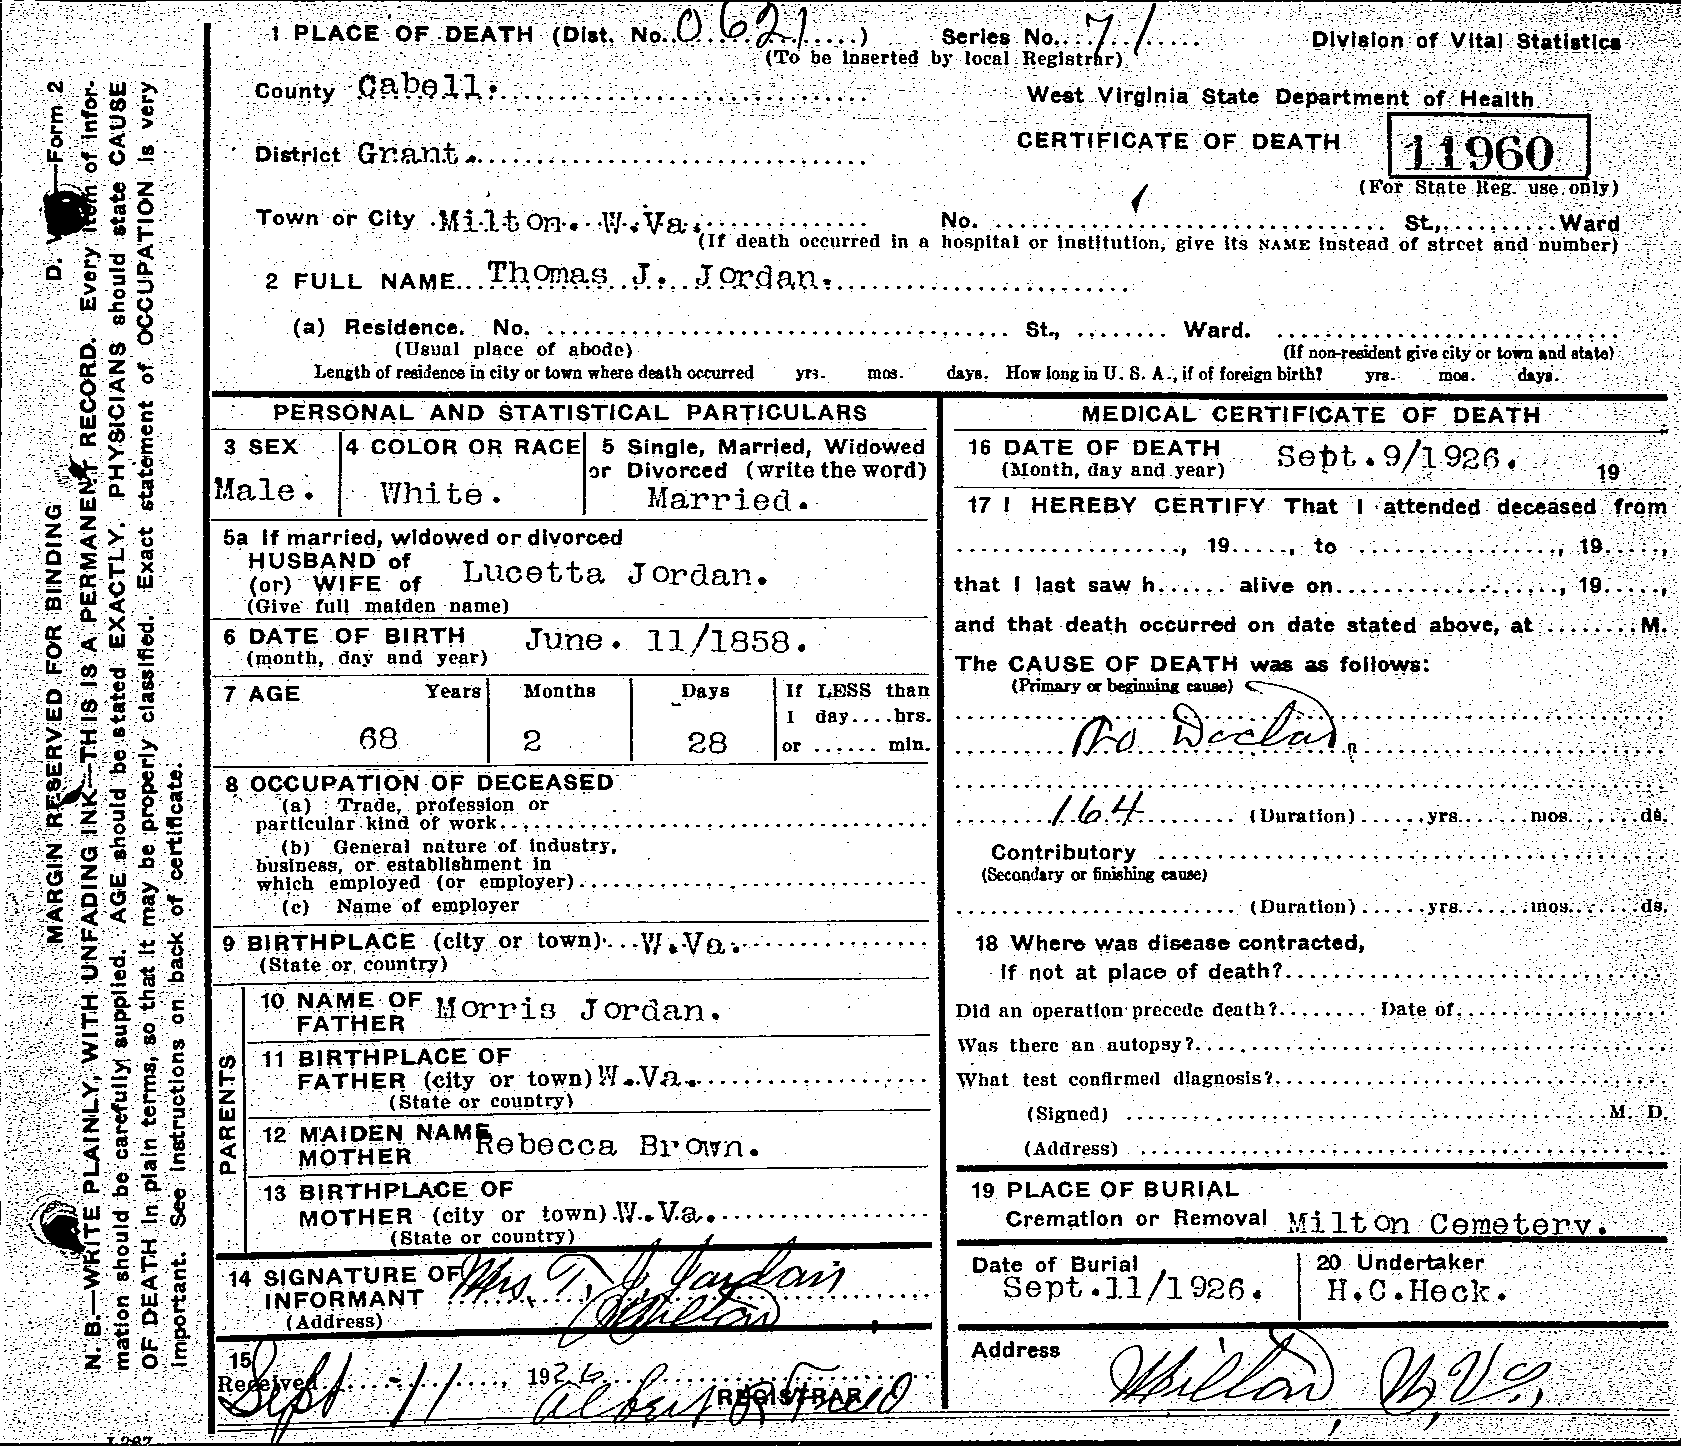 1 PLACE OF DEATH (Dist. No. 0621) Series No. 71 Division of Vital Statistics
(To be inserted by local Registrar)
County Cabell. West Virginia State Department of Health
CERTIFICATE OF DEATH 11960
District Grant.
(For State Reg. use only)
Town or City Milton. W.Va. No. St., Ward
(If death occurred in a hospital or institution, give its NAME instead of street and number)
2 FULL NAME Thomas J. Jordan.
(a) Residence. No. St., Ward.
(Usual place of abode) (If non-resident give city or town and state)
Length of residence in city or town where death occurred yrs. mos. days. How long in U. S. A., if of foreign birth? yrs. mos. days.
PERSONAL AND STATISTICAL PARTICULARS
3 SEX
Male.
4 COLOR OR RACE
White.
5 Single, Married, Widowed
or Divorced (write the word)
Married.
5a If married, widowed or divorced
HUSBAND of
(or) WIFE of Lucetta Jordan.
(Give full maiden name)
6 DATE OF BIRTH June. 11/1858.
(month, day and year)
7 AGE Years Months Days If LESS than
1 day....hrs.
68 2 28 or ...... min.
8 OCCUPATION OF DECEASED
(a) Trade, profession or
particular kind of work
(b) General nature of industry,
business, or establishment in
which employed (or employer)
(c) Name of employer
9 BIRTHPLACE (city or town) W.Va.
(State or country)
PARENTS
10 NAME OF
FATHER Morris Jordan.
11 BIRTHPLACE OF
FATHER (city or town) W.Va.
(State or country)
12 MAIDEN NAME
MOTHER Rebecca Brown.
13 BIRTHPLACE OF
MOTHER (city or town) W.Va.
(State or country)
14 SIGNATURE OF
INFORMANT Mrs. T. J. Jordan
(Address) Milton
15
Received Sept - 11, 1926
Albert REGISTRAR
MEDICAL CERTIFICATE OF DEATH
16 DATE OF DEATH Sept.9/1926. 19
(Month, day and year)
17 I HEREBY CERTIFY That I attended deceased from
, 19....., to , 19.....,
that I last saw h...... alive on , 19.....,
and that death occurred on date stated above, at ........M.
The CAUSE OF DEATH was as follows:
(Primary or beginning cause)
No Doctor
164 (Duration)......yrs.......mos.......ds.
Contributory
(Secondary or finishing cause)
(Duration)......yrs.......mos.......ds.
18 Where was disease contracted,
if not at place of death?
Did an operation precede death?........ Date of
Was there an autopsy?
What test confirmed diagnosis?
(Signed) M. D.
(Address)
19 PLACE OF BURIAL
Cremation or Removal Milton Cemetery.
Date of Burial
Sept.11/1926.
20 Undertaker
H.C.Heck.
Address
Milton, W, Va,
D. Form 2
MARGIN RESERVED FOR BINDING
N. B.—WRITE PLAINLY, WITH UNFADING INK—THIS IS A PERMANENT RECORD. Every item of infor-
mation should be carefully supplied. AGE should be stated EXACTLY. PHYSICIANS should state CAUSE
OF DEATH in plain terms, so that it may be properly classified. Exact statement of OCCUPATION is very
important. See instructions on back of certificate.